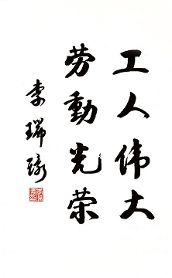 工人伟大
劳動光荣
李瑞環